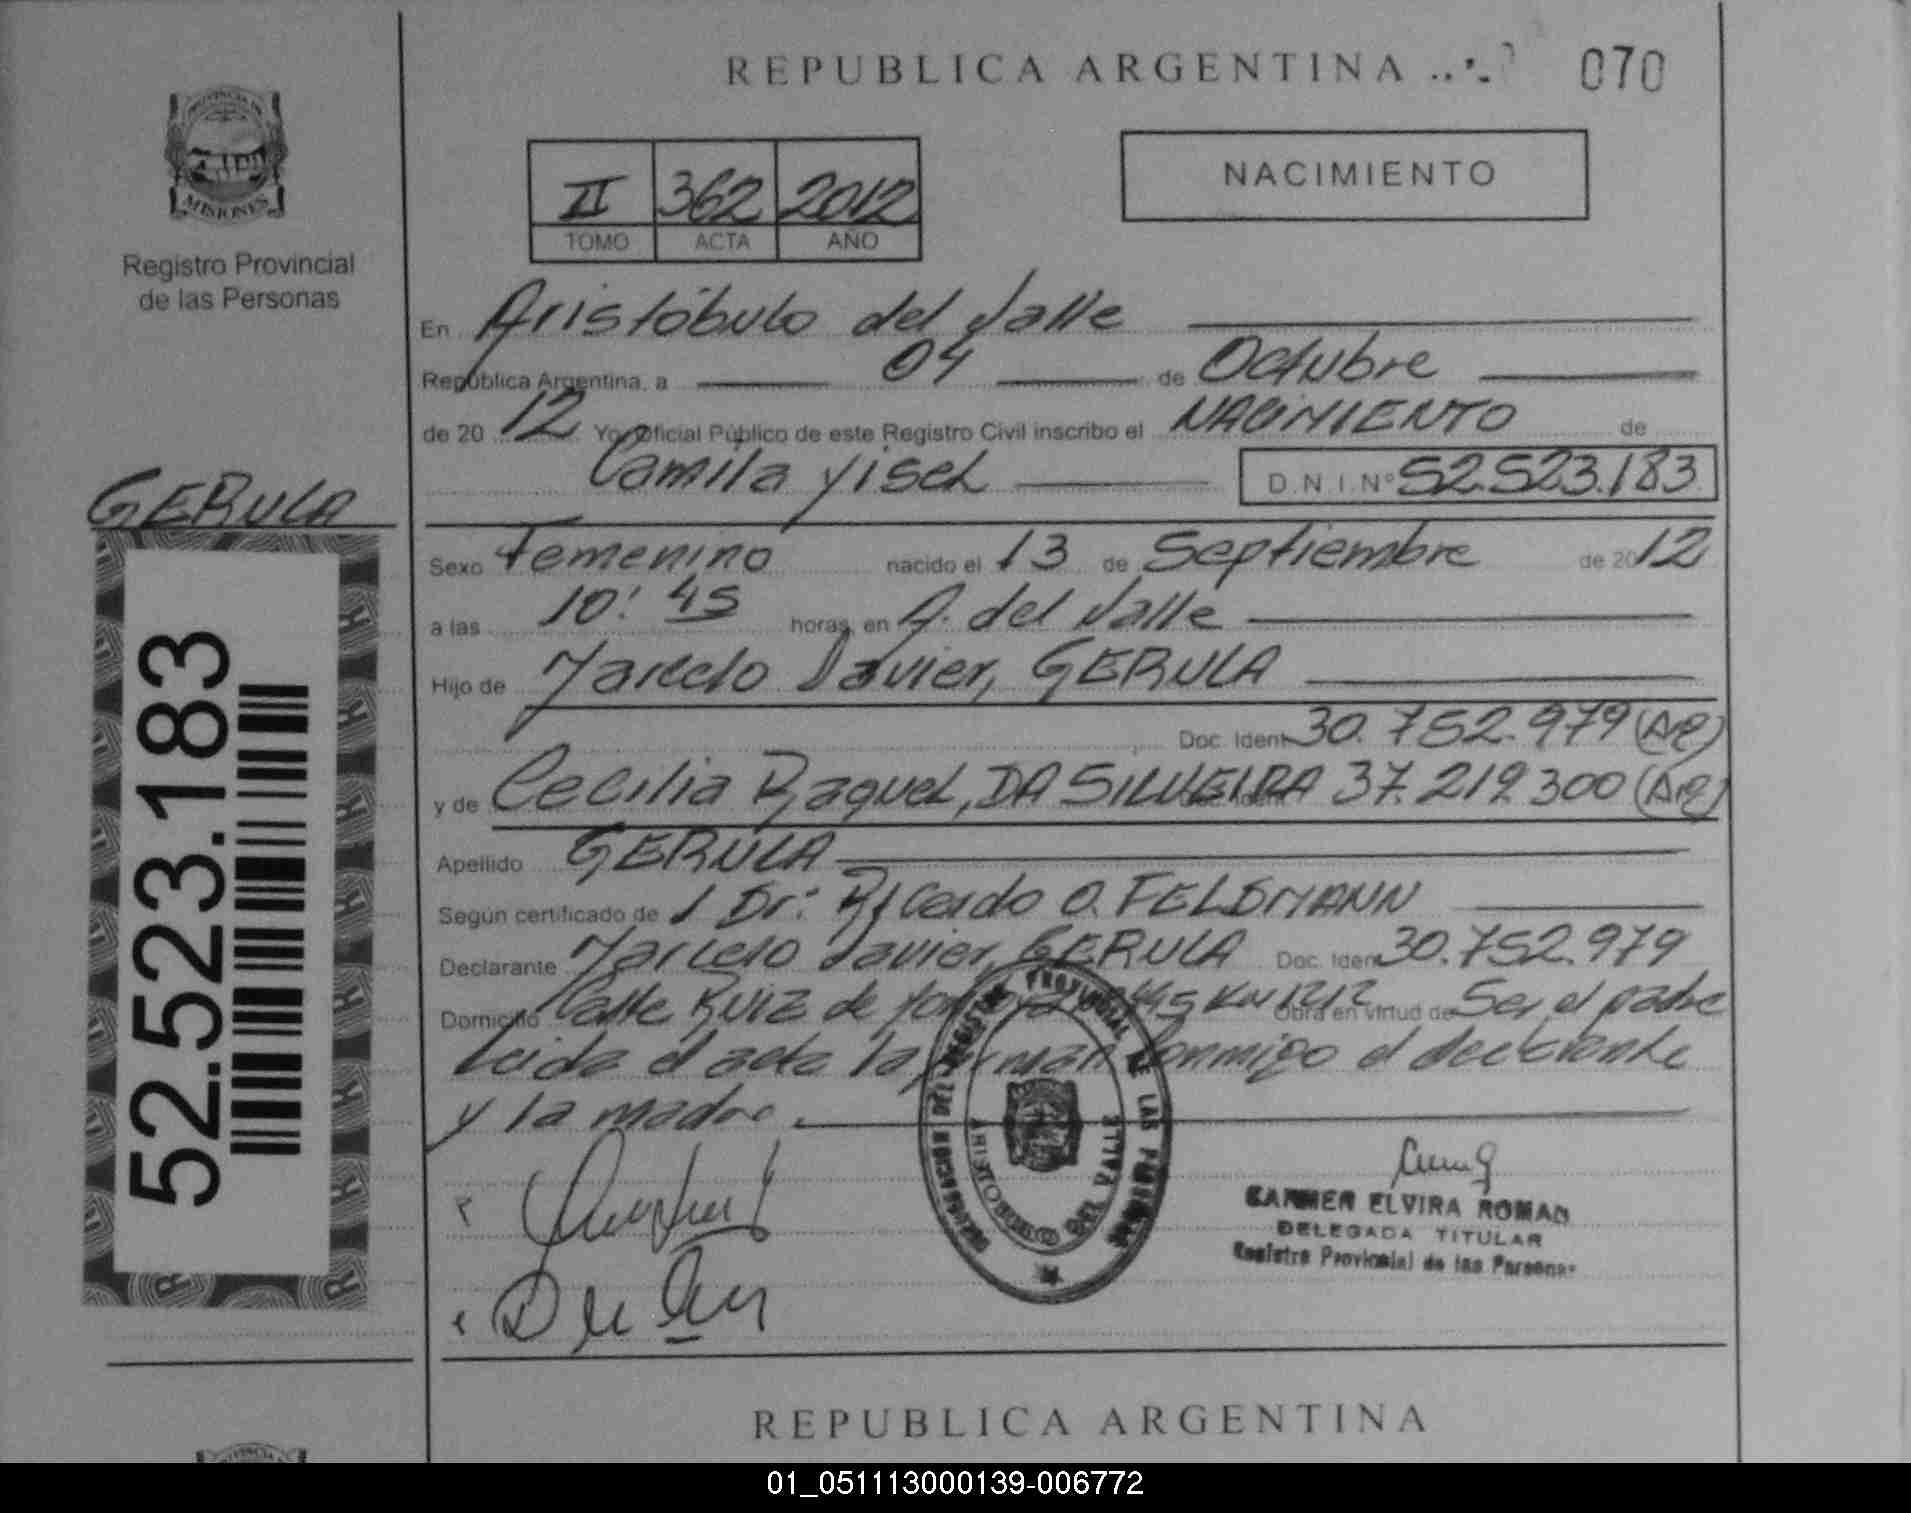 REPUBLICA ARGENTINA
070
PROVINCIA DE
MISIONES
Registro Provincial
de las Personas
II 362 2012
TOMO ACTA AÑO
NACIMIENTO
En Aristóbulo del Valle
República Argentina, a 04 de Octubre
de 2012 Yo, Oficial Público de este Registro Civil inscribo el NACIMIENTO de
Camila Yisel D.N.I.Nº 52.523.183
GERULA
Sexo Femenino nacido el 13 de Septiembre de 2012
a las 10:45 horas, en A. del Valle
Hijo de Marcelo Javier, GERULA
Doc. Ident 30.752.979 (AR)
y de Cecilia Raquel, DA SILVEIRA 37.219.300 (AR)
Apellido GERULA
Según certificado de 1 Dr: Ricardo O. FELDMANN
Declarante Marcelo Javier, GERULA Doc. Ident 30.752.979
Domicilio Calle Ruiz de Obra en virtud de Ser el padre
Leida el acta la firman conmigo el declarante
y la madre
52.523.183
DELEGACION DEL REGISTRO PROVINCIAL DE LAS PERSONAS
ARISTOBULO DEL VALLE
CARMEN ELVIRA ROMAN
DELEGADA TITULAR
Registro Provincial de las Personas
REPUBLICA ARGENTINA
01_051113000139-006772